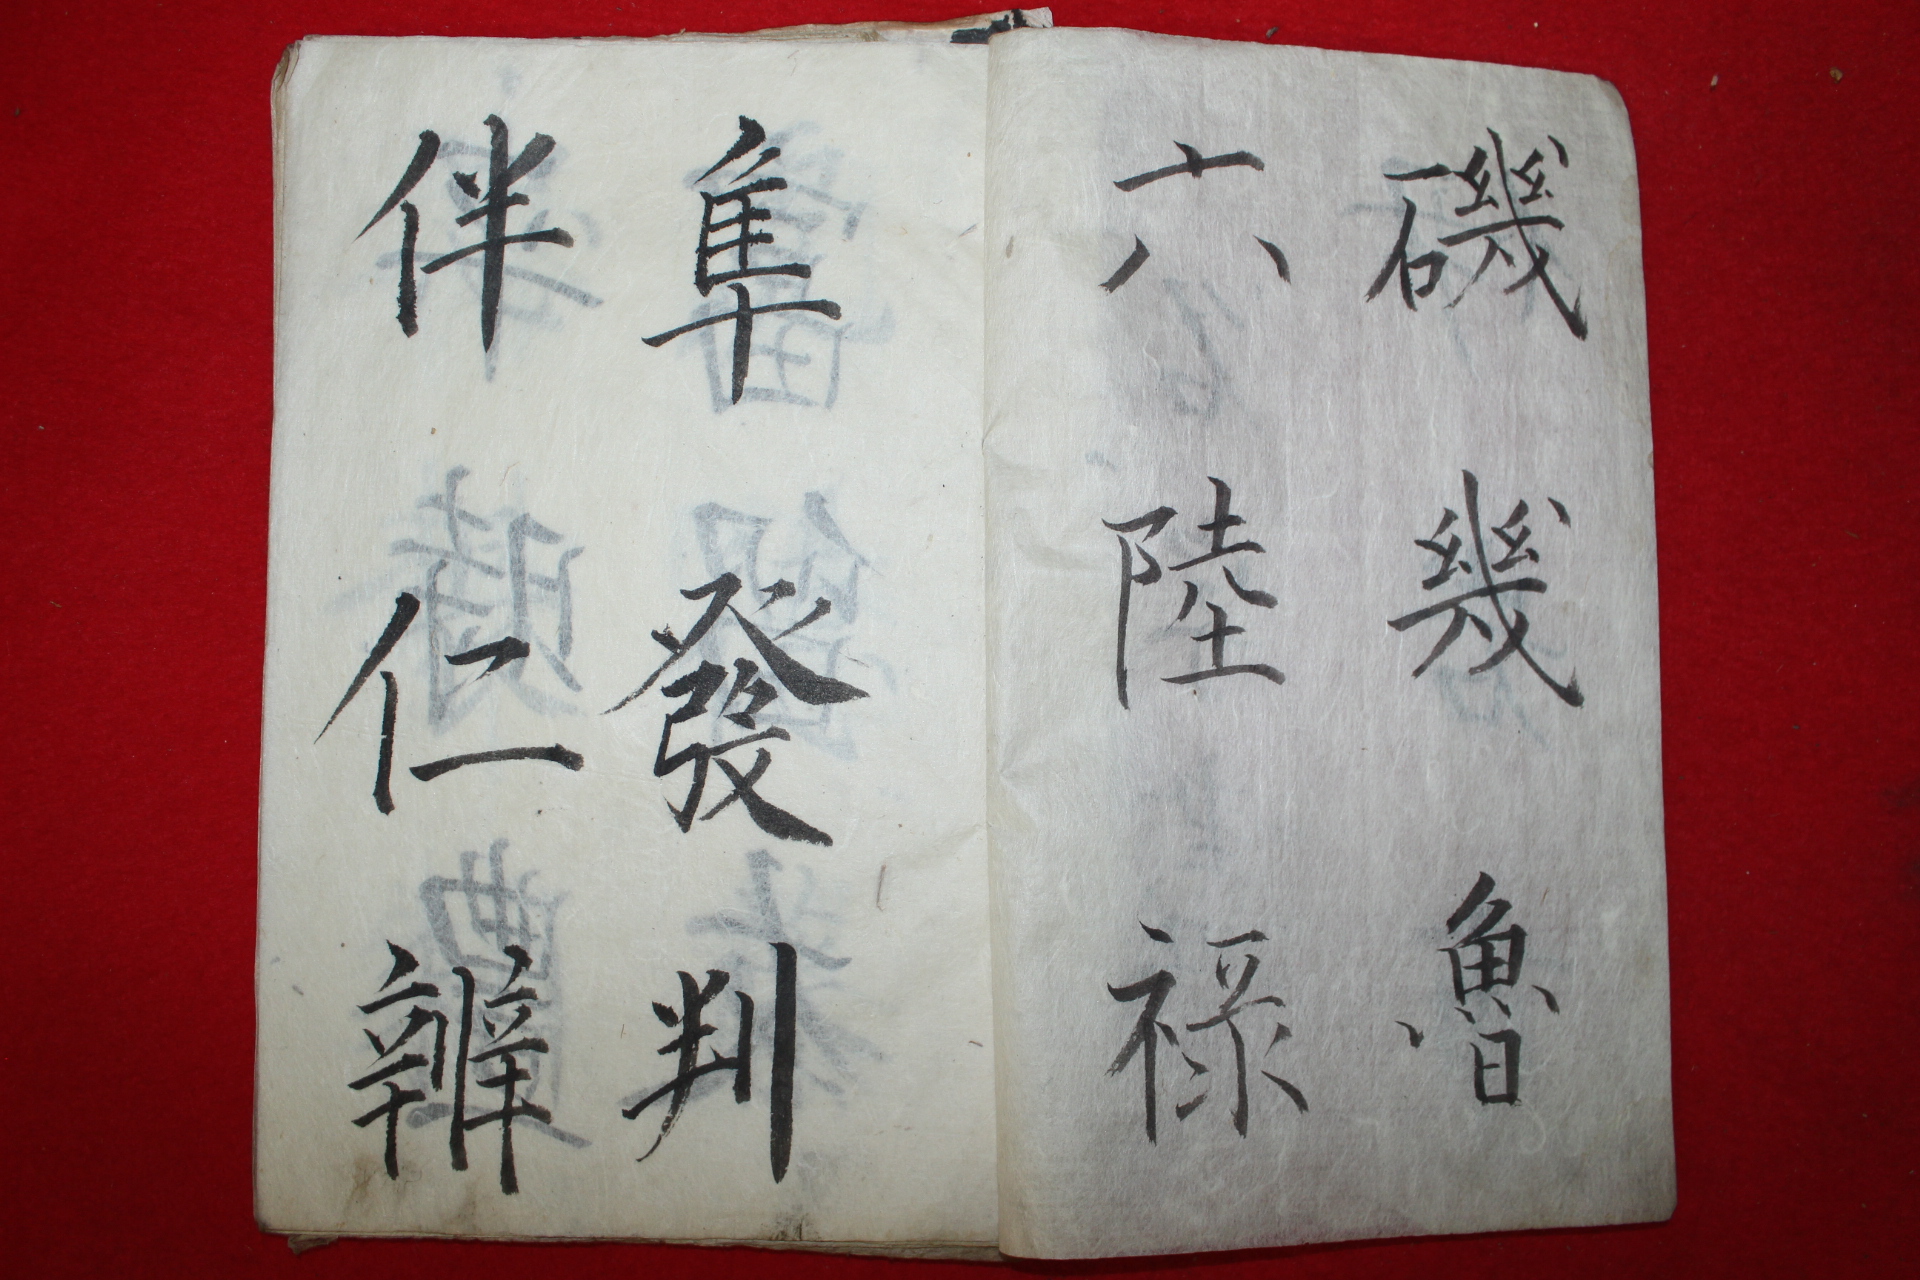 磯幾魯
六陸祿
隼發判
伴仁辨